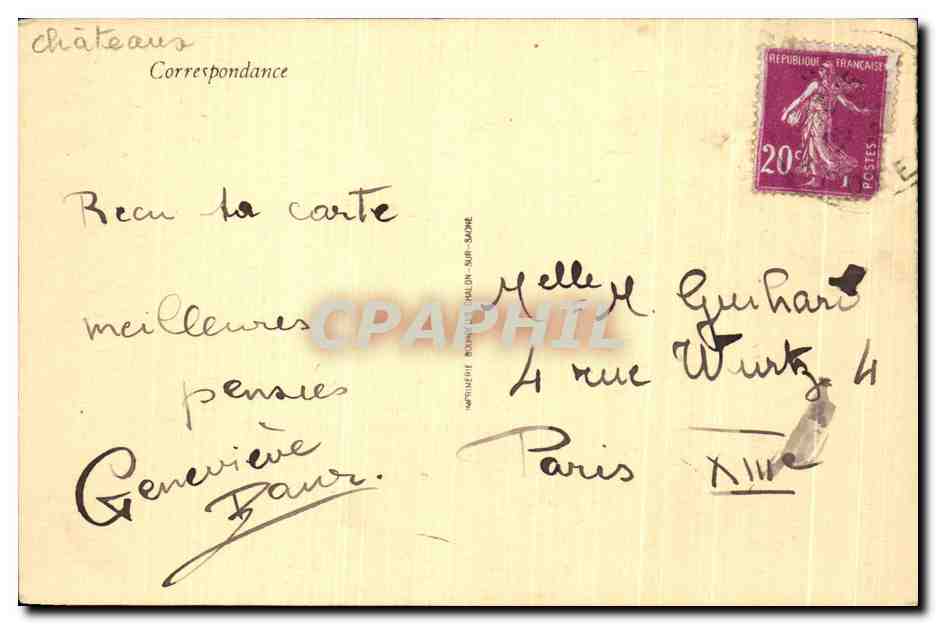 châteaux
Correspondance
REPUBLIQUE FRANÇAISE
20c
POSTES
Recu ta carte
meilleures
pensées
Geneviève
IMPRIMERIE CHALON-SUR-SAONE
Melle M. Guihard
4 rue Wurtz 4
Paris XIIIe
CPAPHIL